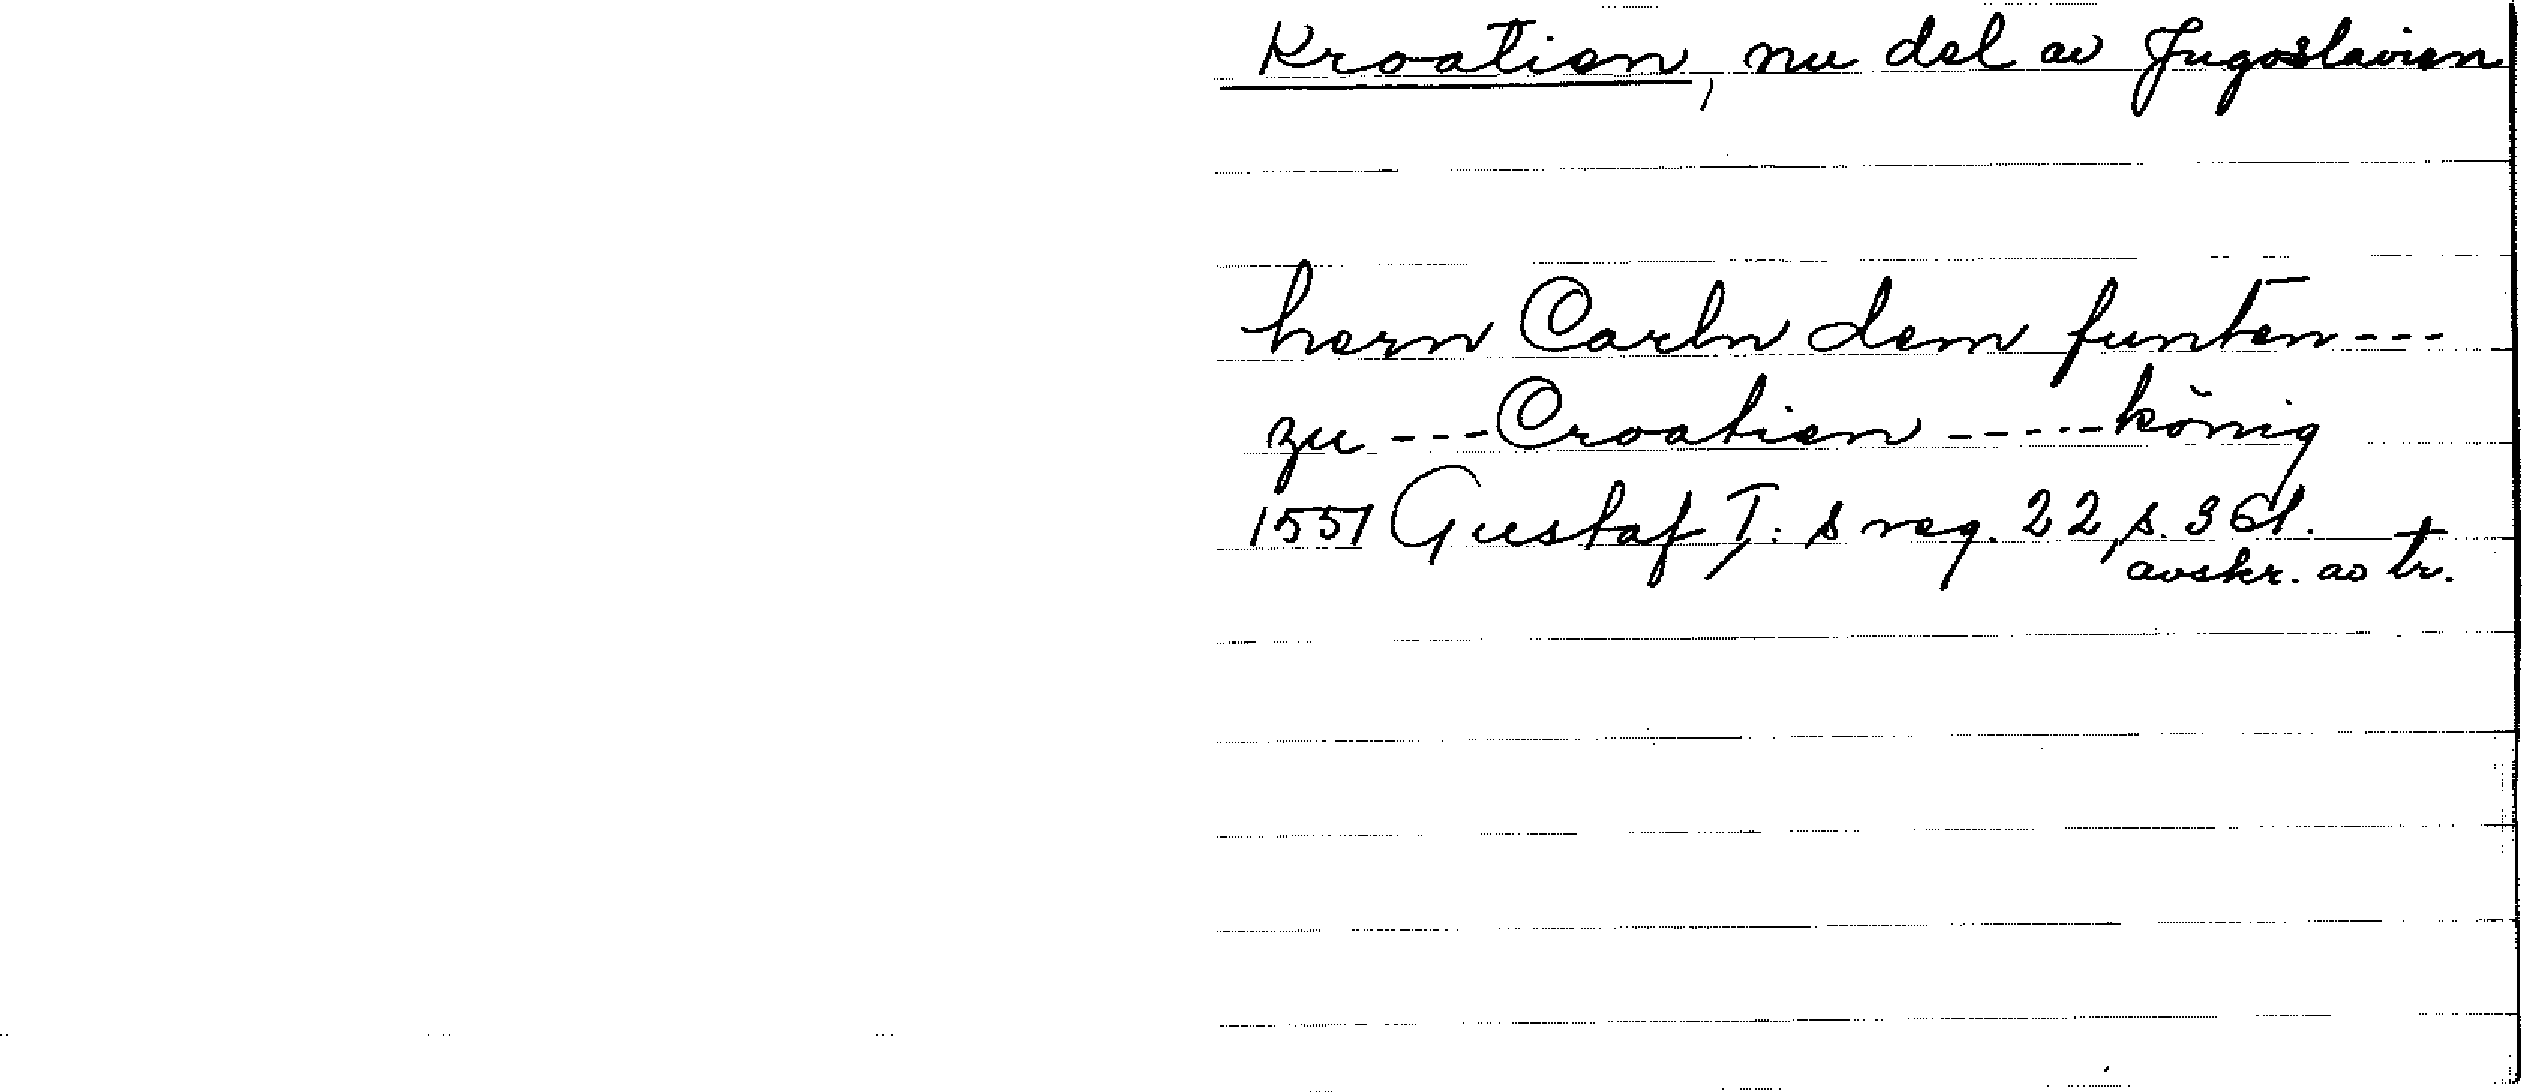 Kroatien, nu del av Jugoslavien
hern Carln dem funten ---
zu --- Croatien ----- könig
1551 Gustaf I:s reg. 22, s. 361.
avskr. av tr.